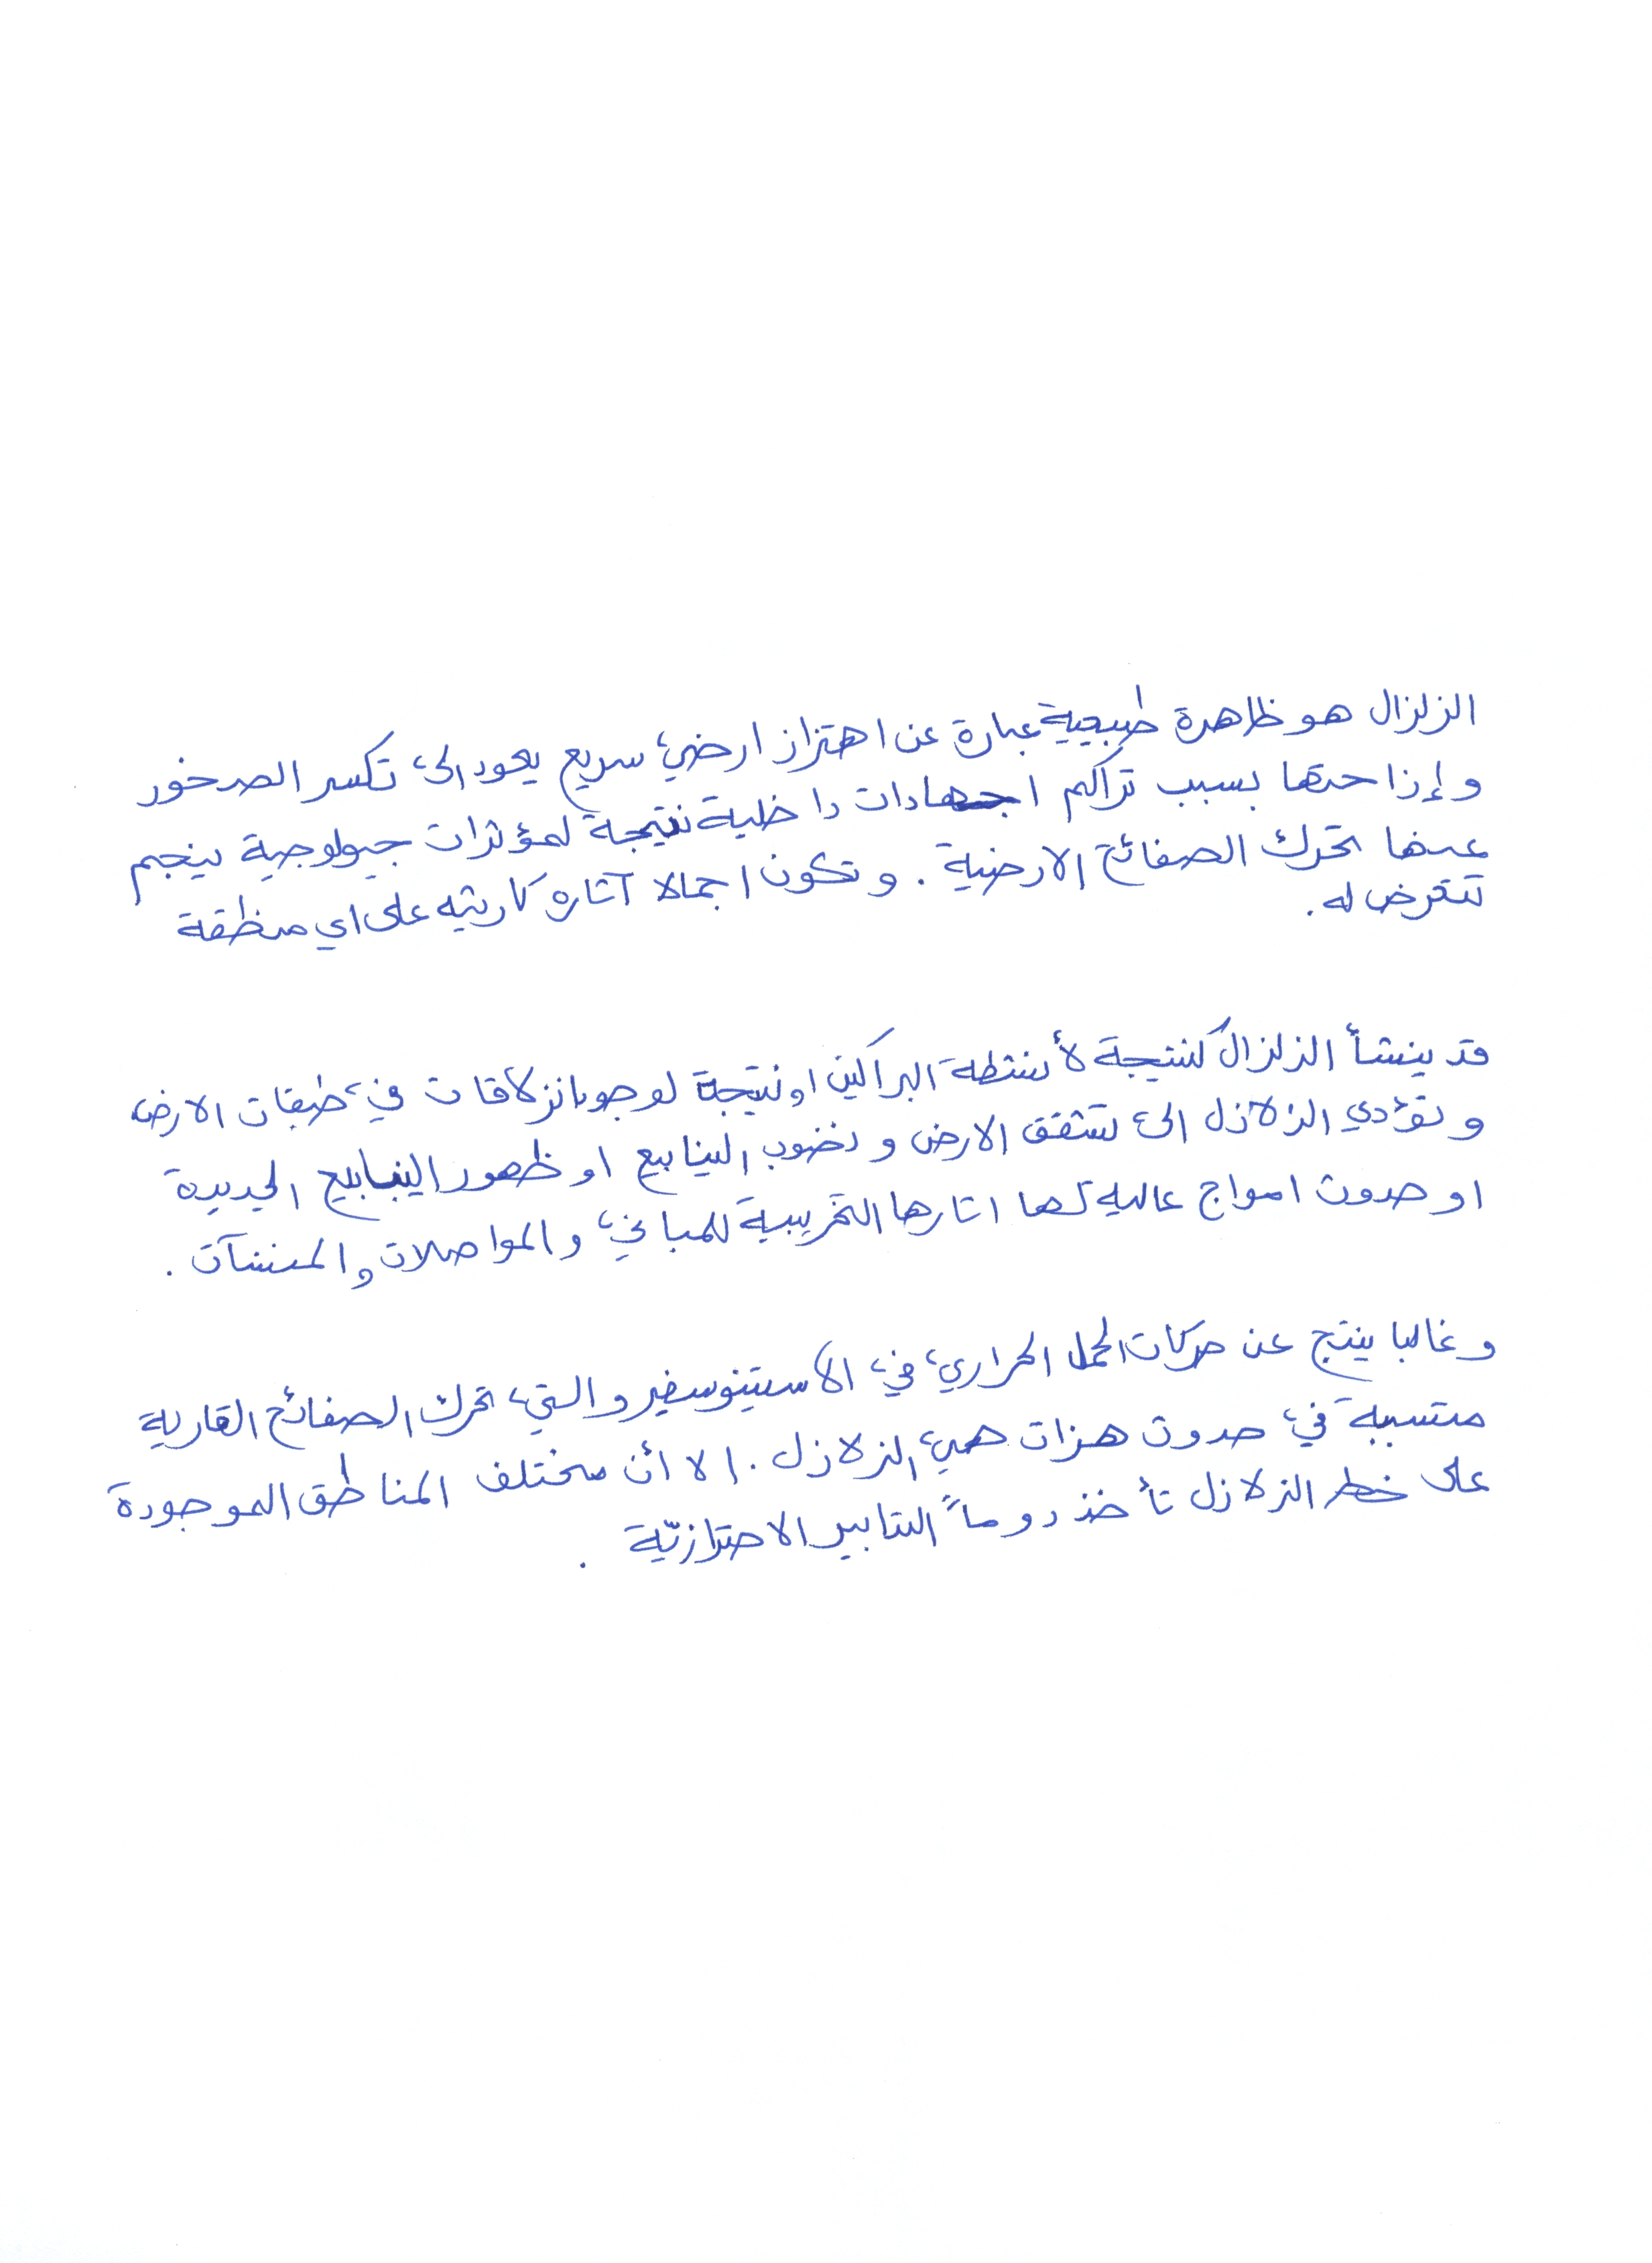 الزلزال هو ظاهرة طبيعية عبارة عن اهتزاز ارضي سريع يعود الى تكسر الصخور
وإزاحتها بسبب تراكم اجهادات داخلية نتيجة لمؤثرات جيولوجية ينجم
عنها تحرك الصفائح الارضية . وتكون اجمالا آثاره كارثيه على اي منطقة
تتعرض له .
قد ينشأ الزلزال كنتيجة لأنشطة البراكين او نتيجة لوجود انزلاقات في طبقات الارض
وتؤدي الزلازل الى تشقق الارض ونضوب الينابيع او ظهور الينابيع الجديدة
او حدوث امواج عالية لها اثارها التخريبية للمباني والمواصلات والمنشآت .
وغالبا ينتج عن حركات الحمل الحراري في الأستينوسفير والتي تحرك الصفائح القارية
متسببة في حدوث هزات هي الزلازل . الا أن مختلف المناطق الموجودة
على خط الزلازل تأخذ دوماً التدابير الاحترازيّة .